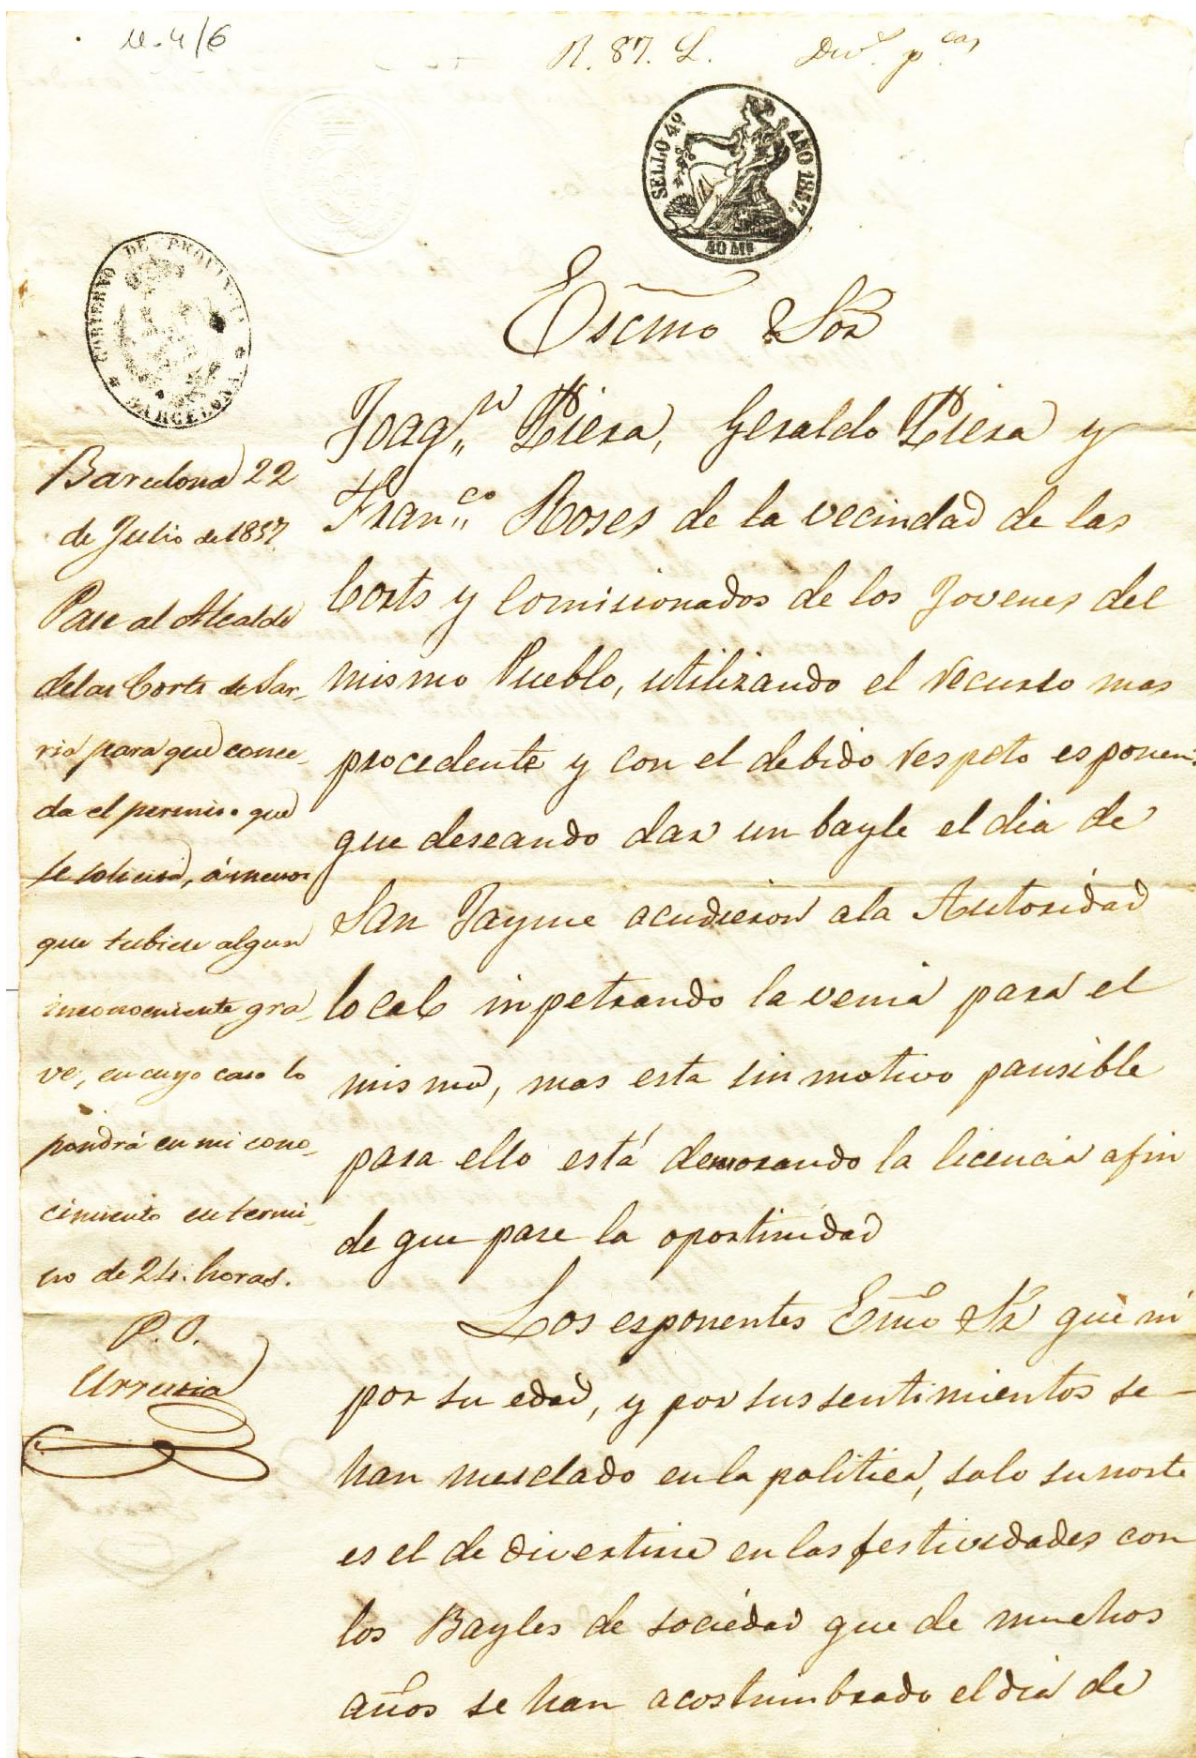 N. 87. L.
SELLO 4º AÑO 1857.
40 Ms
GOBIERNO DE PROVINCIA
BARCELONA
Escmo Sor
Joaqn Piera, Geraldo Piera y
Franco Roses de la vecindad de las
Corts y Comisionados de los Jovenes del
mismo Pueblo, utilizando el recurso mas
procedente y con el debido respeto esponen:
que deseando dar un bayle el dia de
San Jayme acudieron ala Autoridad
local inpetrando la venia para el
mismo, mas esta sin motivo pausible
para ello está demorando la licencia afin
de que pase la oportinidad
Los esponentes Emo Sr que ni
por su edad, y por sus sentimientos se
han mesclado en la politica, solo su norte
es el de divertirse en las festividades con
los Bayles de sociedad que de muchos
años se han acostumbrado el dia de
Barcelona 22
de Julio de 1857.
Pase al Alcalde
delas Corts de Sar-
riá para que conce-
da el permiso que
se solicita, á menos
que tubiese algun
inconveniente gra-
ve, en cuyo caso lo
pondrá en mi cono-
cimiento en termi-
no de 24 horas.
P.O.
Urrutia